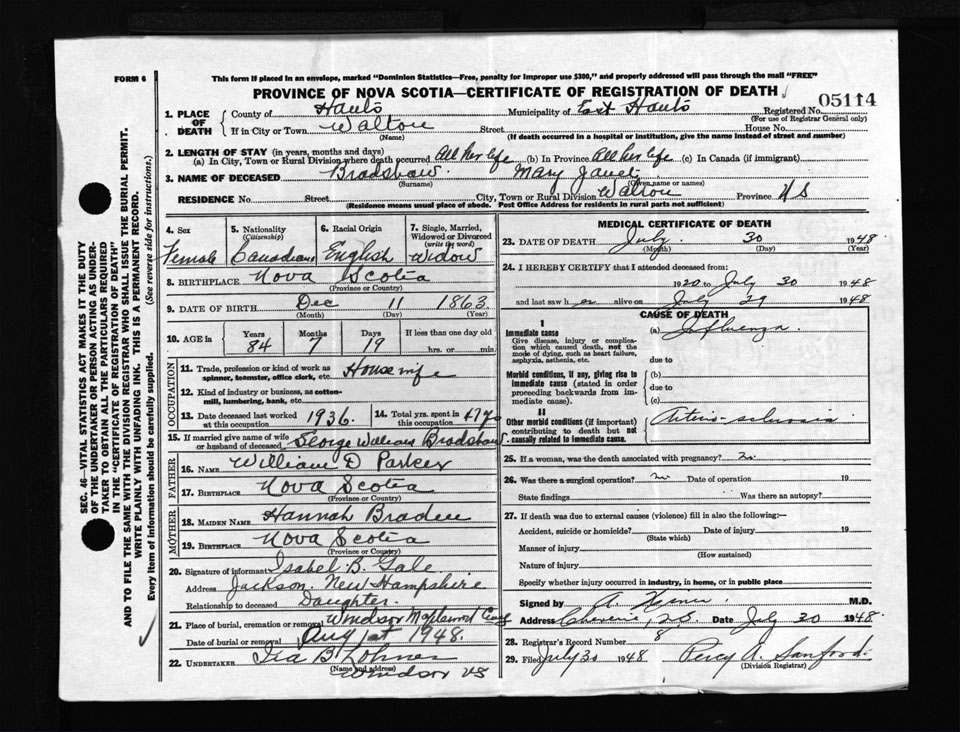 FORM 6
This form if placed in an envelope, marked "Dominion Statistics—Free, penalty for improper use $300," and properly addressed will pass through the mail "FREE"
PROVINCE OF NOVA SCOTIA—CERTIFICATE OF REGISTRATION OF DEATH
05114
1. PLACE OF DEATH County of Hants Municipality of East Hants Registered No.
(For use of Registrar General only)
If in City or Town Walton Street House No.
(Name) (If death occurred in a hospital or institution, give the name instead of street and number)
2. LENGTH OF STAY (in years, months and days)
(a) In City, Town or Rural Division where death occurred All her life (b) In Province All her life (c) In Canada (if immigrant)
3. NAME OF DECEASED Bradshaw Mary Janet
(Surname) (Given name or names)
RESIDENCE No. Street City, Town or Rural Division Walton Province N S
(Residence means usual place of abode. Post Office Address for residents in rural parts not sufficient)
4. Sex 5. Nationality (Citizenship) 6. Racial Origin 7. Single, Married, Widowed or Divorced (write the word)
Female Canadian English Widow
8. BIRTHPLACE Nova Scotia
(Province or Country)
9. DATE OF BIRTH Dec 11 1863
(Month) (Day) (Year)
10. AGE in Years Months Days If less than one day old
84 7 19 hrs. or min.
OCCUPATION
11. Trade, profession or kind of work as spinner, teamster, office clerk, etc. Housewife
12. Kind of industry or business, as cotton-mill, lumbering, bank, etc.
13. Date deceased last worked at this occupation 1936. 14. Total yrs. spent in this occupation
15. If married give name of wife or husband of deceased George William Bradshaw
FATHER
16. NAME William D Parker
17. BIRTHPLACE Nova Scotia
(Province or Country)
MOTHER
18. MAIDEN NAME Hannah
19. BIRTHPLACE Nova Scotia
(Province or Country)
20. Signature of informant Isabel B. Gale
Address Jackson, New Hampshire
Relationship to deceased Daughter.
21. Place of burial, cremation or removal Windsor Maplewood Cem
Date of burial or removal Aug 1st 1948.
22. UNDERTAKER Ira B
(Name and address)
Windsor NS
MEDICAL CERTIFICATE OF DEATH
23. DATE OF DEATH July 30 1948
(Month) (Day) (Year)
24. I HEREBY CERTIFY that I attended deceased from:
1920 to July 30 1948
and last saw her alive on July 29 1948
CAUSE OF DEATH
I
Immediate cause (a) Influenza
Give disease, injury or complication which caused death, not the mode of dying, such as heart failure, asphyxia, asthenia, etc.
due to
Morbid conditions, if any, giving rise to immediate cause (stated in order proceeding backwards from immediate cause).
(b)
due to
(c)
II
Other morbid conditions (if important) contributing to death but not causally related to immediate cause.
Arterio-sclerosis
25. If a woman, was the death associated with pregnancy? no
26. Was there a surgical operation? no Date of operation 19
State findings Was there an autopsy?
27. If death was due to external causes (violence) fill in also the following:—
Accident, suicide or homicide? Date of injury 19
(State which)
Manner of injury
(How sustained)
Nature of injury
Specify whether injury occurred in industry, in home, or in public place
Signed by A. M.D.
Address Cheverie, N.S. Date July 30 1948.
28. Registrar's Record Number 8
29. Filed July 30 1948 Percy A. Sanford.
(Division Registrar)
SEC. 46—VITAL STATISTICS ACT MAKES IT THE DUTY
OF THE UNDERTAKER OR PERSON ACTING AS UNDER-
TAKER TO OBTAIN ALL THE PARTICULARS REQUIRED
IN THE "CERTIFICATE OF REGISTRATION OF DEATH"
AND TO FILE THE SAME WITH THE DIVISION REGISTRAR WHO SHALL ISSUE THE BURIAL PERMIT.
WRITE PLAINLY WITH UNFADING INK. THIS IS A PERMANENT RECORD.
Every item of information should be carefully supplied. (See reverse side for instructions.)